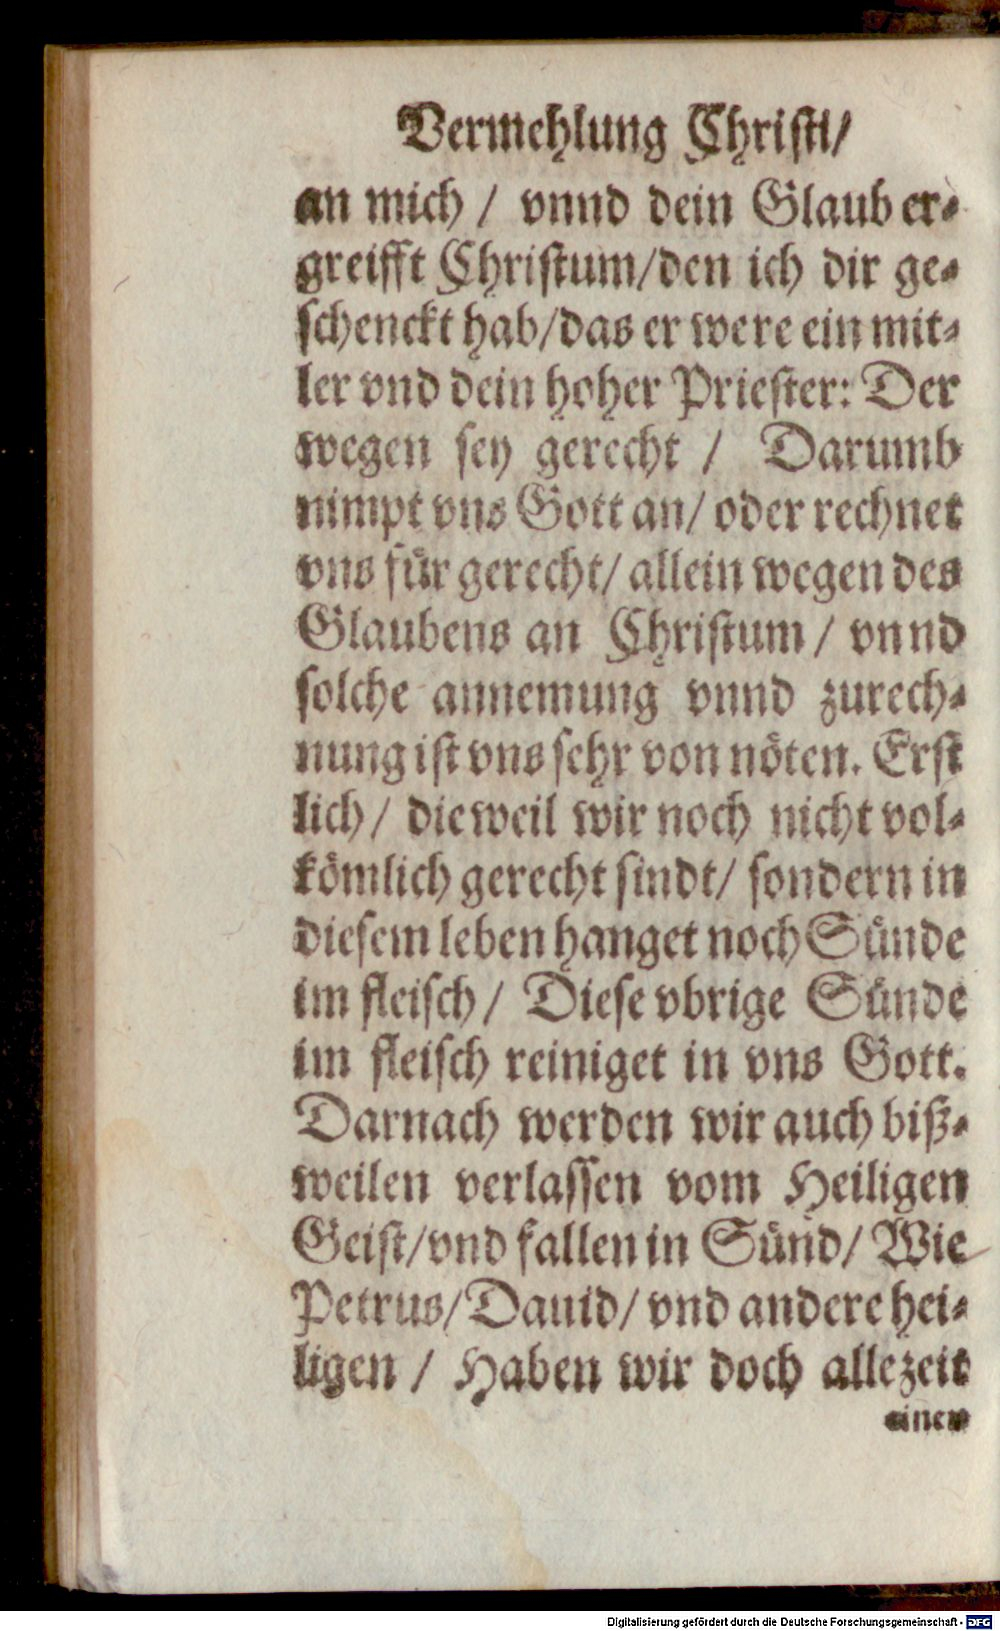 Vermehlung Christi/
an mich / vnnd dein Glaub er-
greifft Christum/den ich dir ge-
schenckt hab/das er were ein mit-
ler vnd dein hoher Priester: Der
wegen sey gerecht / Darumb
nimpt vns Gott an/ oder rechnet
vns für gerecht/ allein wegen des
Glaubens an Christum / vnnd
solche annemung vnnd zurech-
nung ist vns sehr von nöten. Erst
lich/ dieweil wir noch nicht vol-
kömlich gerecht sindt/ sondern in
diesem leben hanget noch Sünde
im fleisch/ Diese vbrige Sünde
im fleisch reiniget in vns Gott.
Darnach werden wir auch biß-
weilen verlassen vom Heiligen
Geist/vnd fallen in Sünd/ Wie
Petrus/Dauid/ vnd andere hei-
ligen / Haben wir doch allezeit
einen
Digitalisierung gefördert durch die Deutsche Forschungsgemeinschaft - DFG